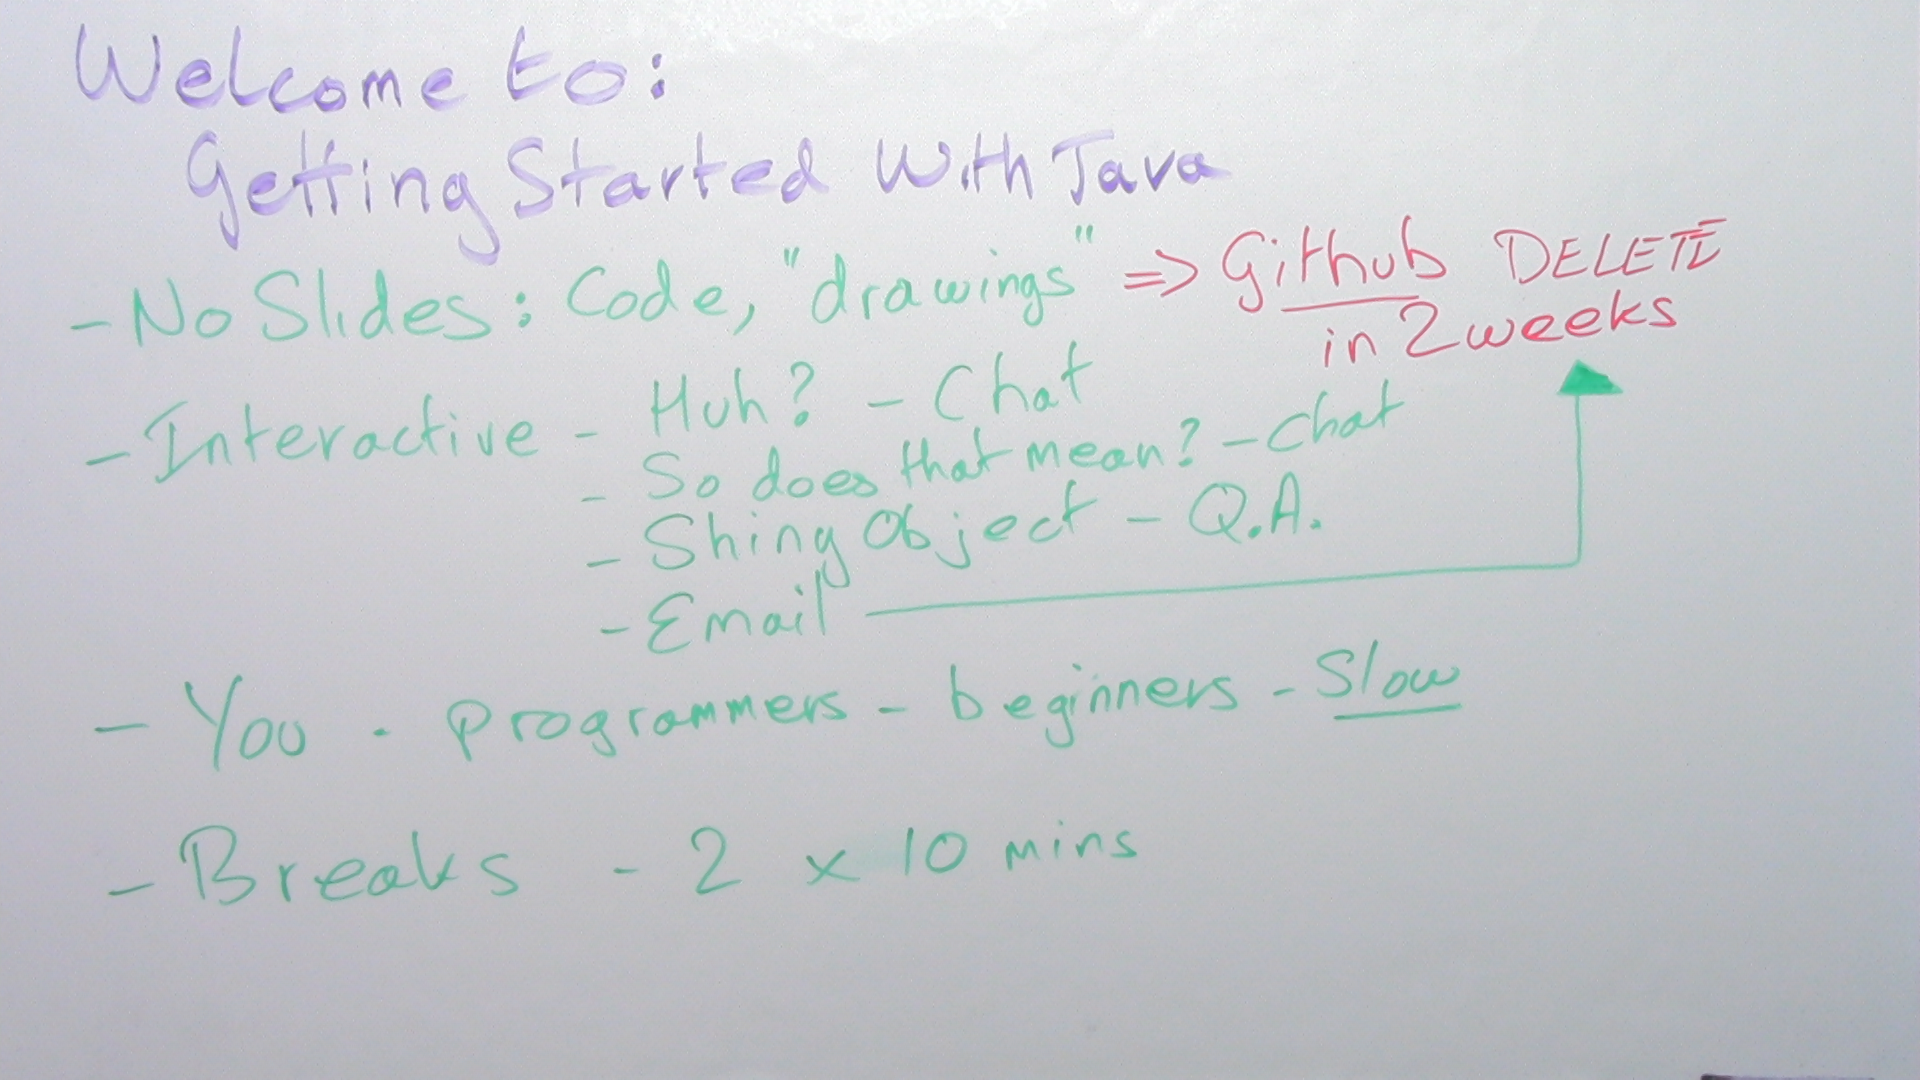 Welcome to:
Getting Started With Java
- No Slides: Code, "drawings" => Github DELETE
in 2 weeks
- Interactive - Huh? - Chat
- So does that mean? - Chat
- Shiny Object - Q.A.
- Email
- You - programmers - beginners - Slow
- Breaks - 2 x 10 mins